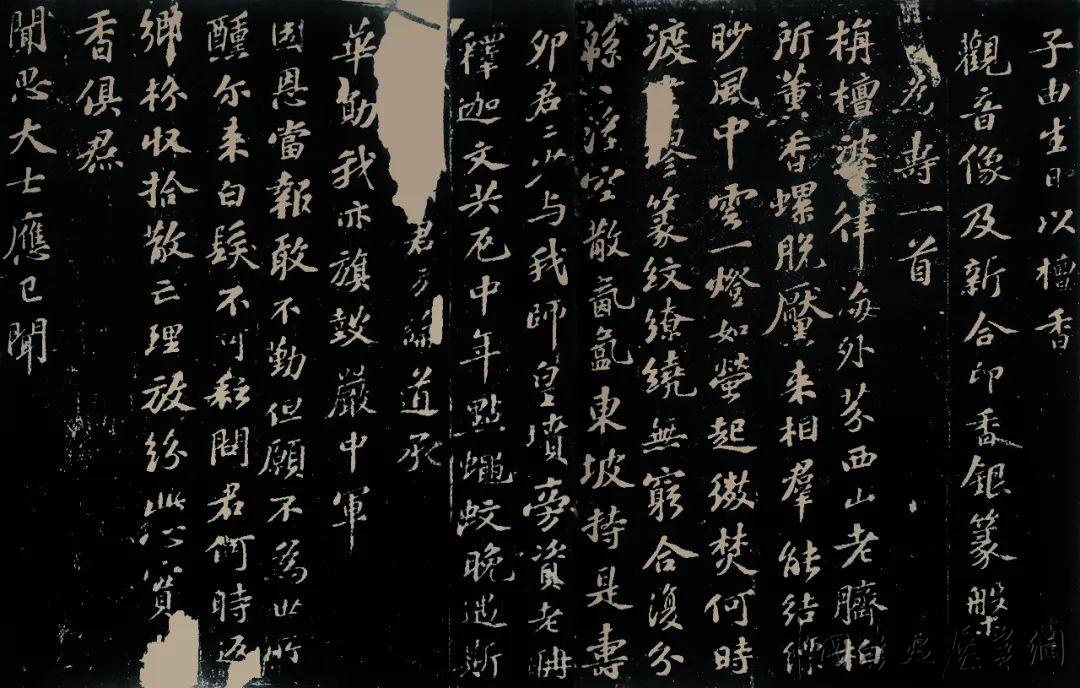 子由生日以檀香
觀音像及新合印香銀篆槃
為壽一首
栴檀婆律海外芬西山老臍柏
所薰香螺脫黶来相羣能結縹
眇風中雲一燈如螢起微焚何時
渡繆篆紋繚繞無窮合復分
緜〻浮空散氤氳東坡持是壽
卯君〻少与我師皇墳旁資老聃
釋迦文共厄中年點蠅蚊晚遇斯
君方論道承
華勛我亦旗鼓嚴中軍
國恩當報敢不勤但願不為世所
醺尔来白髮不可耘問君何時返
鄉枌收拾散亡理放紛此心實
香俱焄
聞思大士應已聞